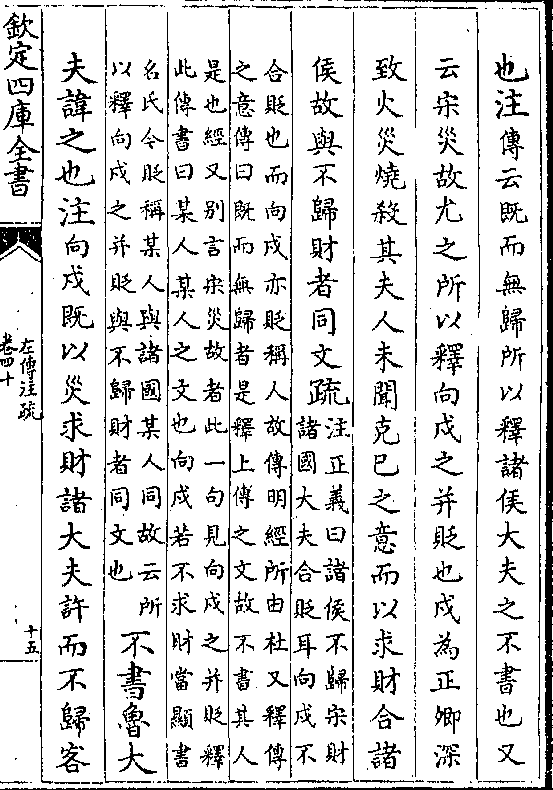 也注傳云既而無歸所以釋諸侯大夫之不書也又
云宋災故尤之所以釋向戌之并貶也戌為正卿深
致火災燒殺其夫人未聞克巳之意而以求財合諸
侯故與不歸財者同文疏
注正義曰諸侯不歸宋財
諸國大夫合貶耳向戌不
合貶也而向戌亦貶稱人故傳明經所由杜又釋傳
之意傳曰既而無歸者是釋上傳之文故不書其人
是也經又别言宋災故者此一句見向戌之并貶釋
此傳書曰某人某人之文也向戌若不求財當顯書
名氏今貶稱某人與諸國某人同故云所
以釋向戌之并貶與不歸財者同文也
不書魯大
夫諱之也注向戌既以災求財諸大夫許而不歸客
欽定四庫全書
左傳注疏
卷四十
十五